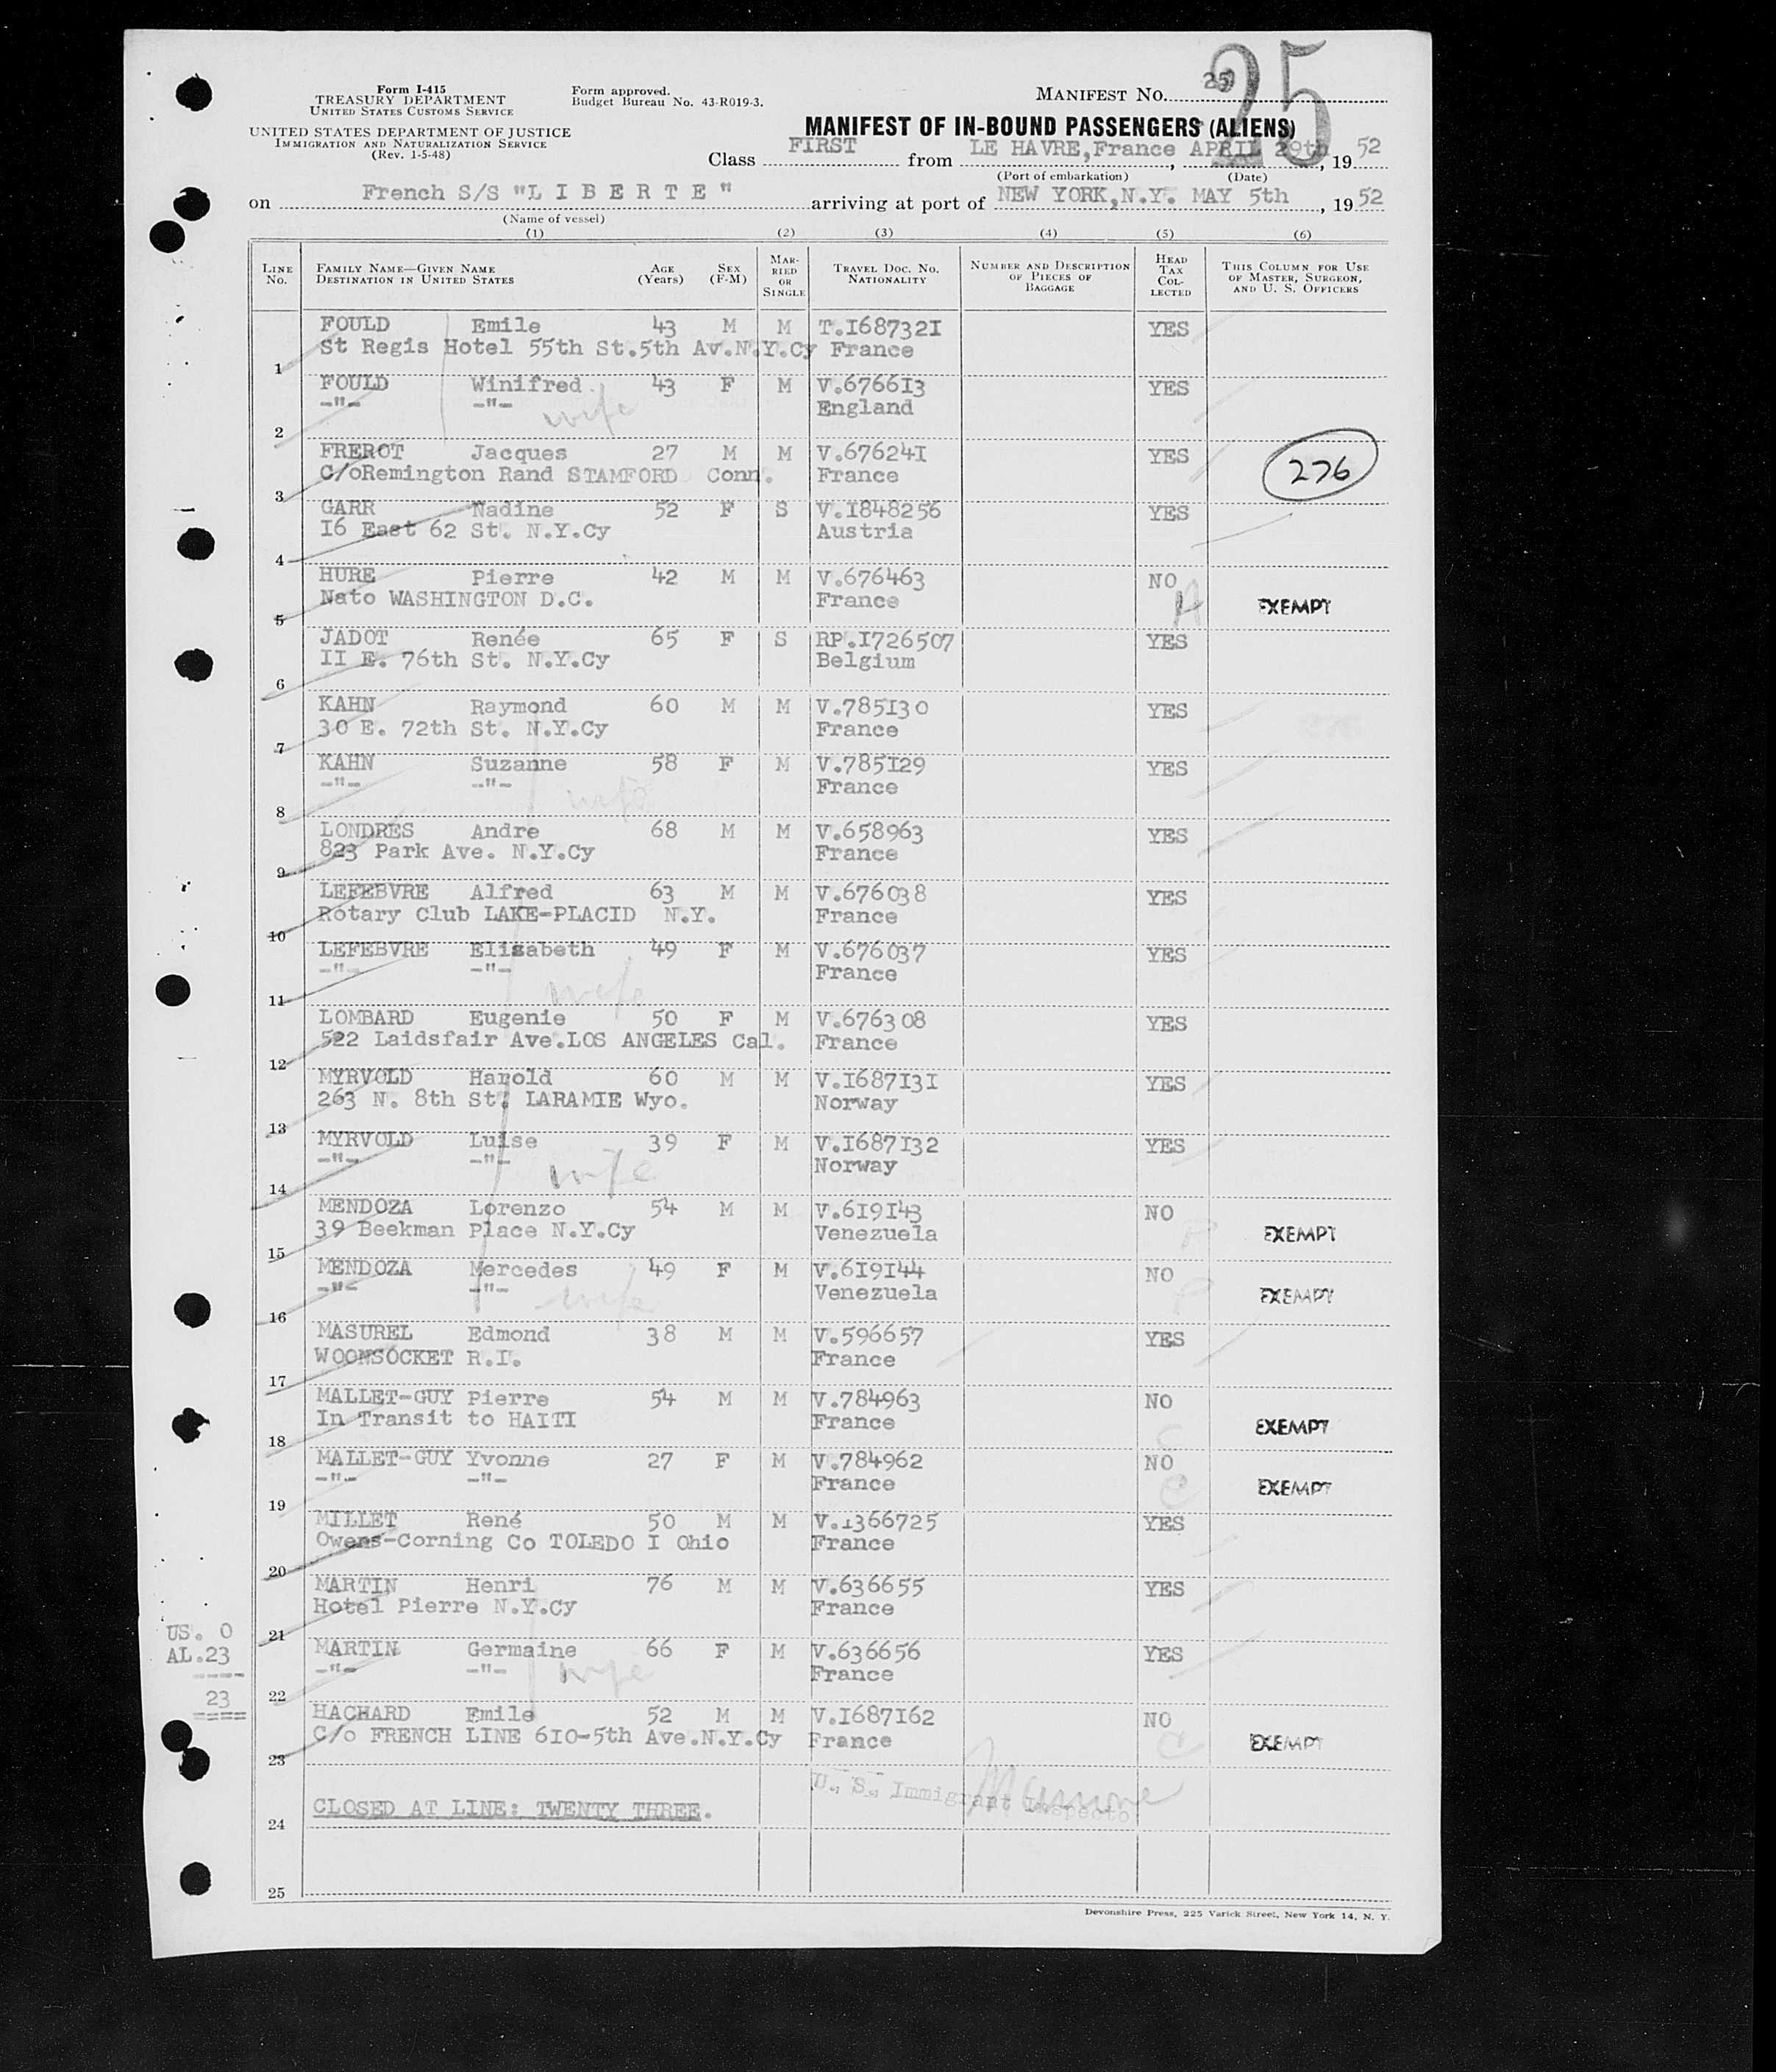 Form I-415
TREASURY DEPARTMENT
UNITED STATES CUSTOMS SERVICE
UNITED STATES DEPARTMENT OF JUSTICE
IMMIGRATION AND NATURALIZATION SERVICE
(Rev. 1-5-48)
Form approved.
Budget Bureau No. 43-R019-3.
MANIFEST NO. 25
25
MANIFEST OF IN-BOUND PASSENGERS (ALIENS)
Class FIRST from LE HAVRE,France APRIL 29th, 19 52
(Port of embarkation) (Date)
on French S/S "L I B E R T E" arriving at port of NEW YORK,N.Y. MAY 5th, 19 52
(Name of vessel)
(1) (2) (3) (4) (5) (6)
LINE No. FAMILY NAME—GIVEN NAME DESTINATION IN UNITED STATES AGE (Years) SEX (F-M) MARRIED OR SINGLE TRAVEL DOC. NO. NATIONALITY NUMBER AND DESCRIPTION OF PIECES OF BAGGAGE HEAD TAX COLLECTED THIS COLUMN FOR USE OF MASTER, SURGEON, AND U. S. OFFICERS
FOULD Emile 43 M M T.I68732I YES
St Regis Hotel 55th St.5th Av.N.Y.Cy France
1
FOULD Winifred 43 F M V.6766I3 YES
-"- -"- wife England
2
FREROT Jacques 27 M M V.67624I YES
C/oRemington Rand STAMFORD Conn. France 276
3
GARR Nadine 52 F S V.I848256 YES
I6 East 62 St. N.Y.Cy Austria
4
HURE Pierre 42 M M V.676463 NO
Nato WASHINGTON D.C. France A EXEMPT
5
JADOT Renée 65 F S RP.I726507 YES
II E. 76th St. N.Y.Cy Belgium
6
KAHN Raymond 60 M M V.785I30 YES
30 E. 72th St. N.Y.Cy France
7
KAHN Suzanne 58 F M V.785I29 YES
-"- -"- wife France
8
LONDRES Andre 68 M M V.658963 YES
823 Park Ave. N.Y.Cy France
9
LEFEBVRE Alfred 63 M M V.676038 YES
Rotary Club LAKE-PLACID N.Y. France
10
LEFEBVRE Elisabeth 49 F M V.676037 YES
-"- -"- wife France
11
LOMBARD Eugenie 50 F M V.676308 YES
522 Laidsfair Ave.LOS ANGELES Cal. France
12
MYRVOLD Harold 60 M M V.I687I3I YES
263 N. 8th St. LARAMIE Wyo. Norway
13
MYRVOLD Luise 39 F M V.I687I32 YES
-"- -"- wife Norway
14
MENDOZA Lorenzo 54 M M V.6I9I43 NO
39 Beekman Place N.Y.Cy Venezuela EXEMPT
15
MENDOZA Mercedes 49 F M V.6I9I44 NO
-"- -"- wife Venezuela EXEMPT
16
MASUREL Edmond 38 M M V.596657 YES
WOONSOCKET R.I. France
17
MALLET-GUY Pierre 54 M M V.784963 NO
In Transit to HAITI France C EXEMPT
18
MALLET-GUY Yvonne 27 F M V.784962 NO
-"- -"- France C EXEMPT
19
MILLET René 50 M M V.I366725 YES
Owens-Corning Co TOLEDO I Ohio France
20
MARTIN Henri 76 M M V.636655 YES
Hotel Pierre N.Y.Cy France
21
MARTIN Germaine 66 F M V.636656 YES
-"- -"- wife France
22
HACHARD Emile 52 M M V.I687I62 NO
C/o FRENCH LINE 6I0-5th Ave.N.Y.Cy France C EXEMPT
23
US. 0
AL.23
----
23
====
U. S. Immigrant Inspector
CLOSED AT LINE: TWENTY THREE.
24
25
Devonshire Press, 225 Varick Street, New York 14, N. Y.